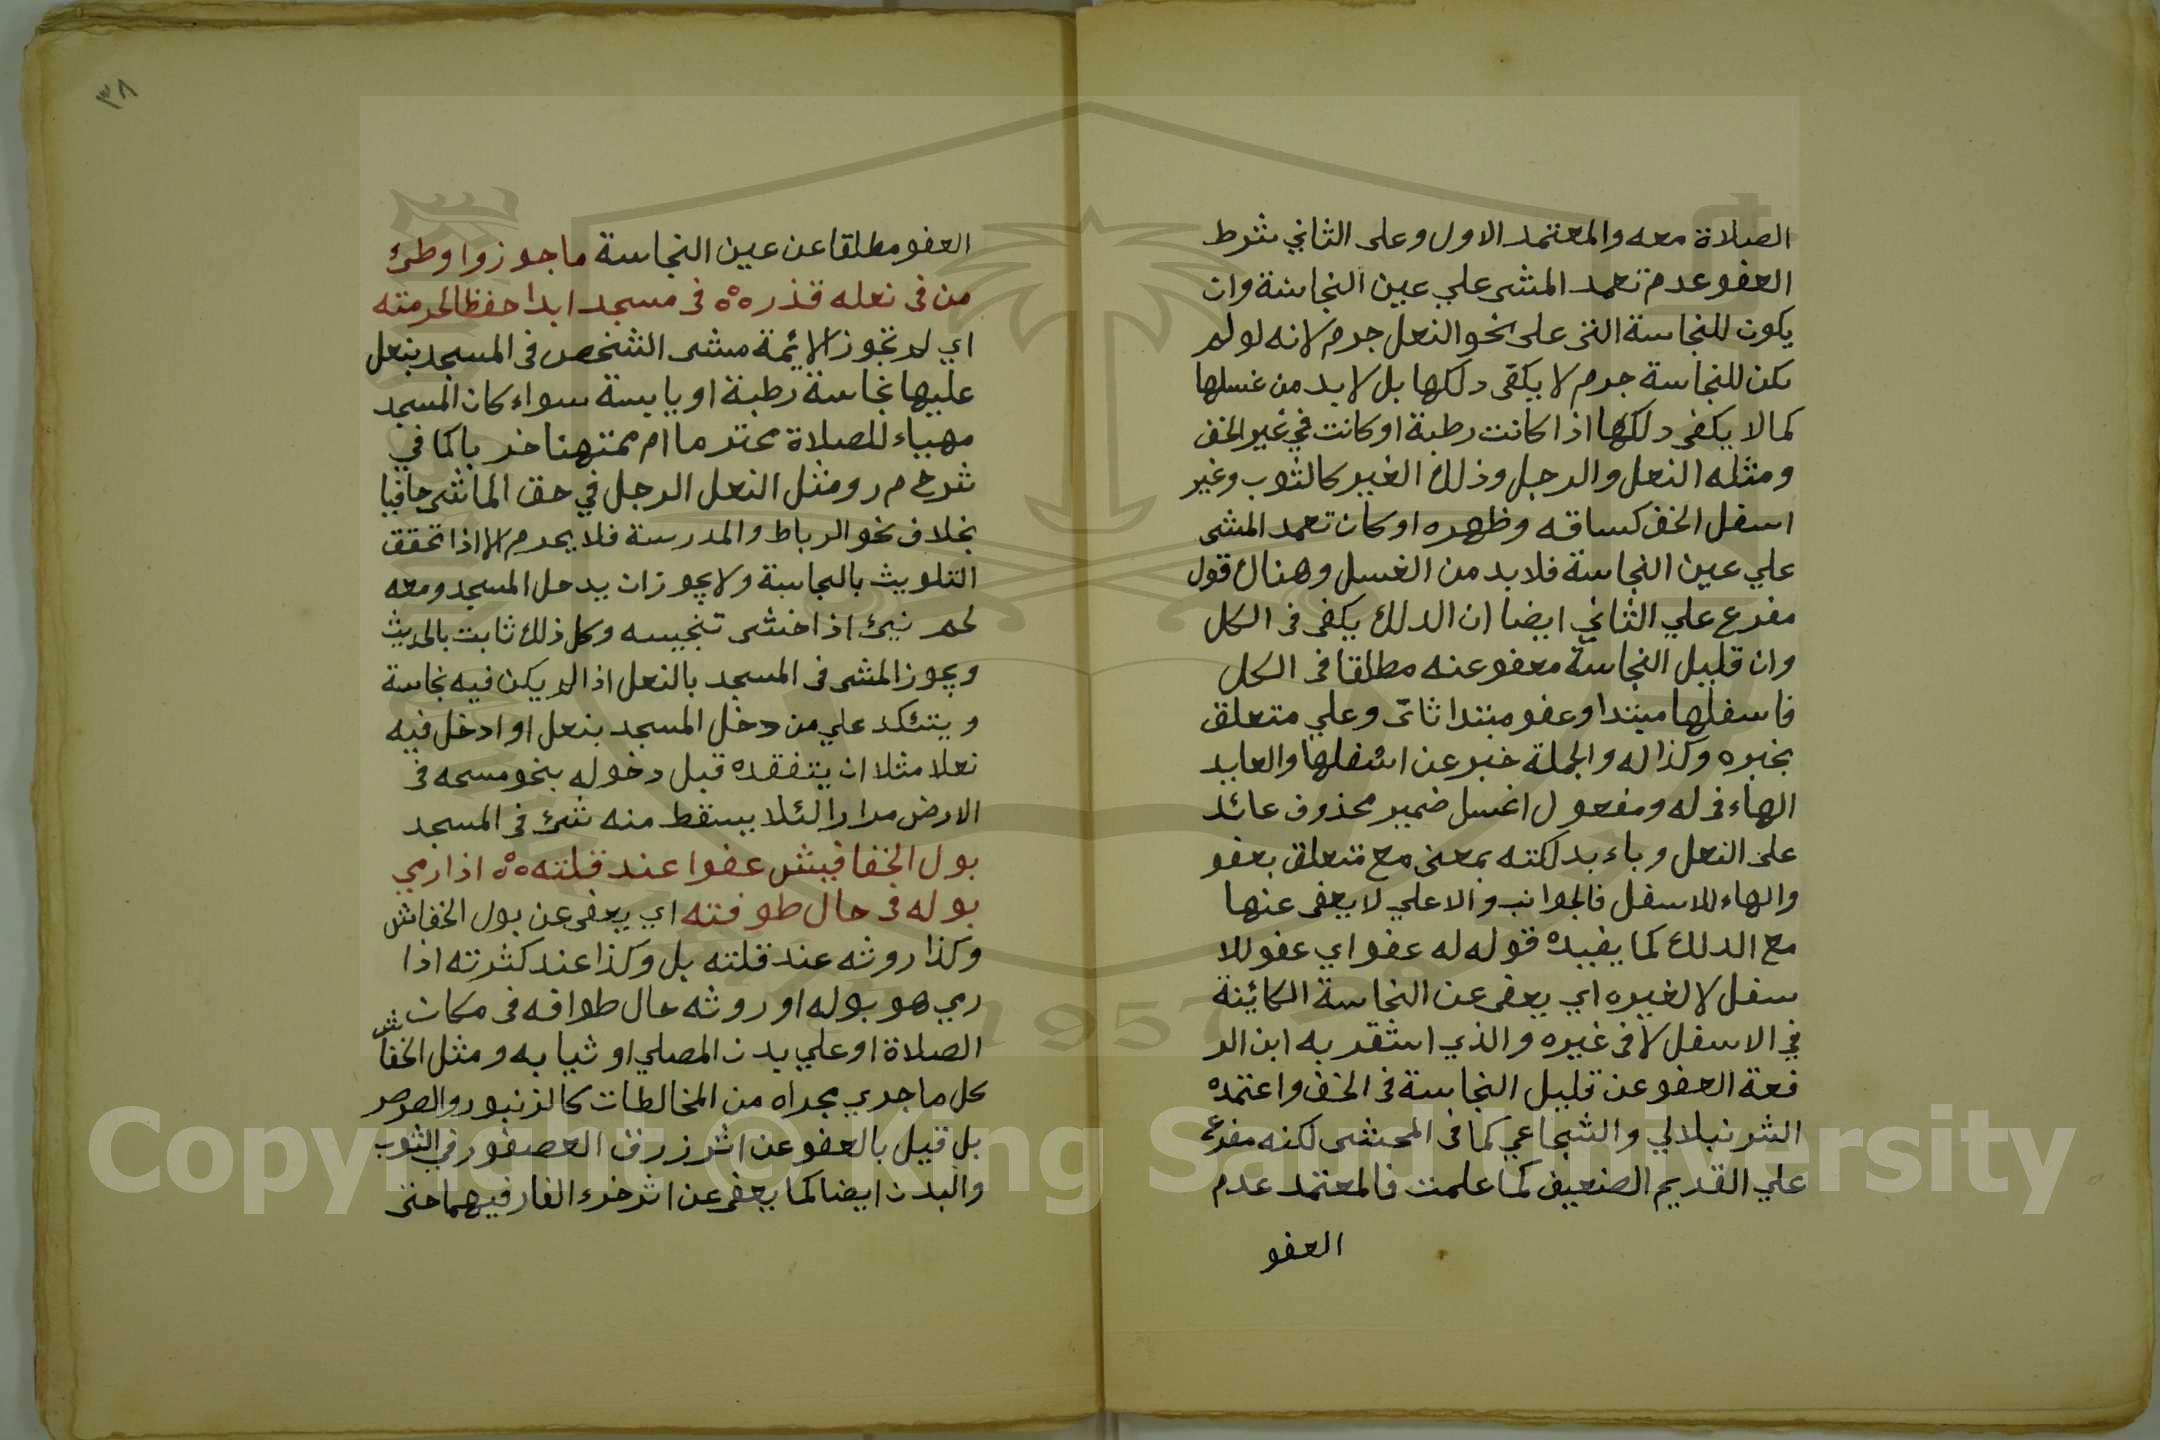 الصلاة معه والمعتمد الاول وعلى الثاني شرط
العفو عدم تعمد المشى علي عين النجاسة وان
يكون للنجاسة التى على نحو النعل جرم لانه لو لم
يكن للنجاسة جرم لا يكفى دلكها بل لا بد من غسلها
كما لا يكفى دلكها اذا كانت رطبة او كانت في غير الخف
ومثله النعل والرجل وذلك الغير كالثوب وغير
اسفل الخف كساقه وظهره او كان تعمد المشى
علي عين النجاسة فلا بد من الغسل وهناك قول
مفرع علي الثاني ايضا ان الدلك يكفى فى الكل
وان قليل النجاسة معفو عنه مطلقا فى الكل
فاسفلها مبتدا وعفو مبتدا ثانى وعلي متعلق
بخبره وكذا له والجملة خبر عن اسفلها والعايد
الهاء فى له ومفعول اغسل ضمير محذوف عائد
على النعل وباء بدلكته بمعنى مع متعلق بعفو
والهاء للاسفل فالجوانب والاعلي لا يعفى عنها
مع الدلك كما يفيده قوله له عفو اي عفو للا
سفل لا لغيره اي يعفى عن النجاسة الكائنة
في الاسفل لا فى غيره والذي استقر به ابن الر
فعة العفو عن قليل النجاسة فى الخف واعتمده
الشرنبلالي والشجاعي كما فى المحشى لكنه مفرع
علي القديم الضعيف كما علمت فالمعتمد عدم
العفو
٣٨
العفو مطلقا عن عين النجاسة ما جوزوا وطئ
من فى نعله قذره فى مسجد ابدا حفظا لحرمته
اي لم تجوز الائمة مشى الشخص فى المسجد بنعل
عليها نجاسة رطبة او يابسة سواء كان المسجد
مهياء للصلاة محترما ام ممتهنا خربا كما في
شرح م ر ومثل النعل الرجل في حق الماشى حافيا
بخلاف نحو الرباط والمدرسة فلا يحرم الا اذا تحقق
التلويث بالنجاسة ولا يجوز ان يدخل المسجد ومعه
لحم نيئ اذا خشى تنجيسه وكل ذلك ثابت بالحديث
ويجوز المشى فى المسجد بالنعل اذا لم يكن فيه نجاسة
ويتئكد علي من دخل المسجد بنعل او ادخل فيه
نعلا مثلا ان يتفقده قبل دخوله بنحو مسحه فى
الارض مرارا لئلا يسقط منه شئ فى المسجد
بول الخفافيش عفوا عند قلته اذا رمي
بوله فى حال طوفته اي يعفى عن بول الخفاش
وكذا روثه عند قلته بل وكذا عند كثرته اذا
رمي هو بوله او روثه حال طوافه فى مكان
الصلاة او علي بدن المصلي او ثيابه ومثل الخفاش
كل ما جري مجراه من المخالطات كالزنبور والصرصر
بل قيل بالعفو عن اثر زرق العصفور في الثوب
والبدن ايضا كما يعفى عن اثر خرء الفار فيهما حتى
Copyright © King Saud University
1957